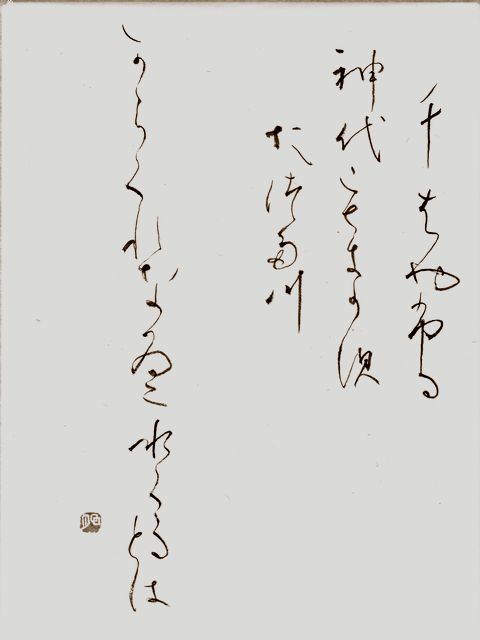 千はや布る
神代もきか須
たつ多川
からくれなゐに水くゝるとは